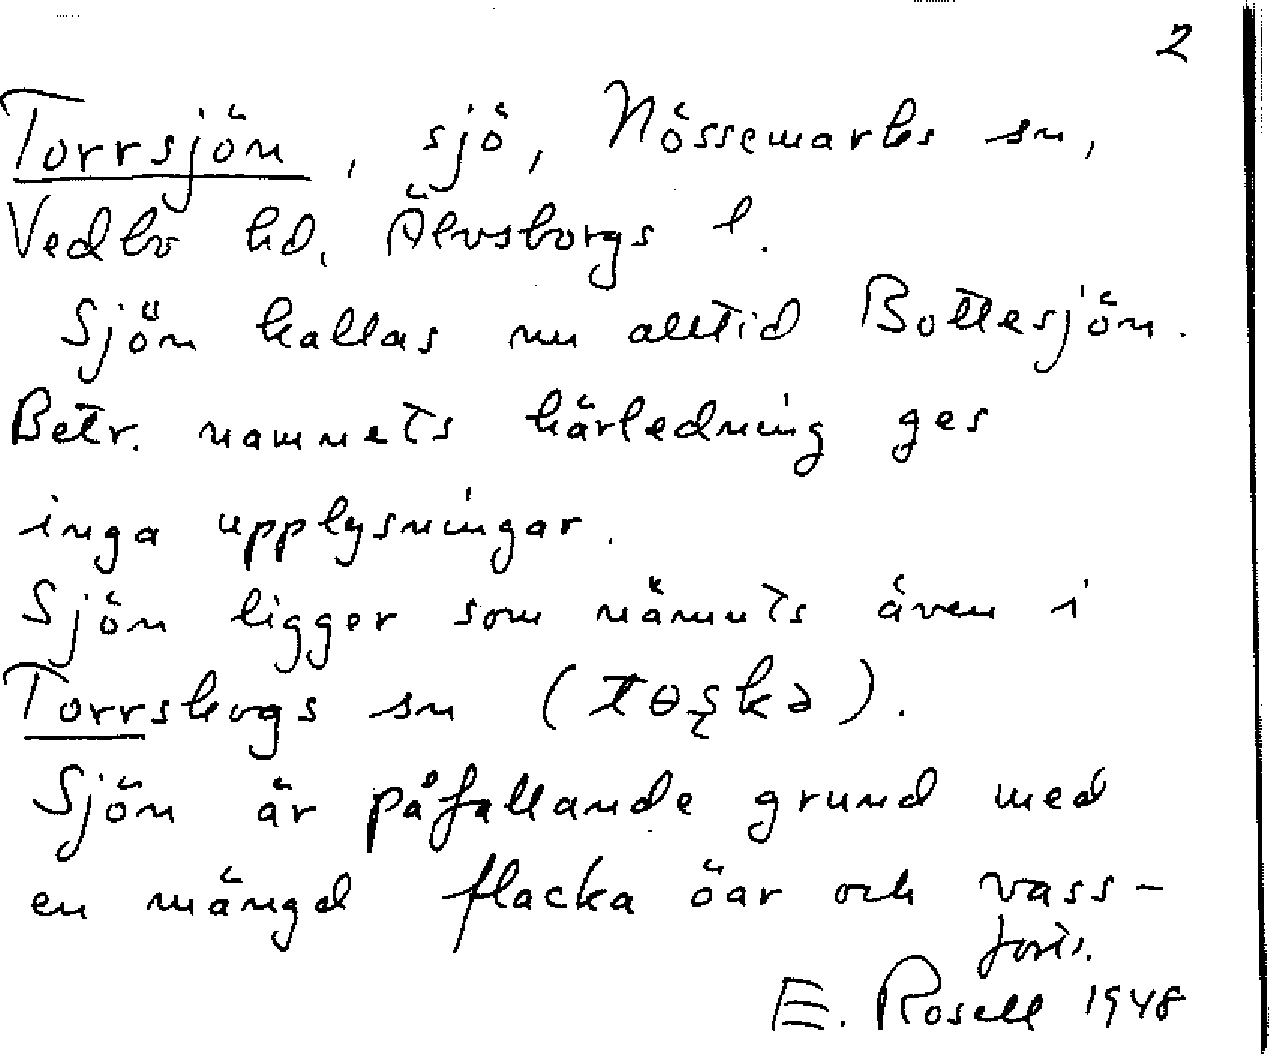 2
Torrsjön, sjö, Nössemarks sn,
Vedbo hd, Älvsborgs l.
Sjön kallas nu alltid Bottesjön.
Betr. namnets härledning ges
inga upplysningar.
Sjön ligger som nämnts även i
Torrskogs sn ( ).
Sjön är påfallande grund med
en mängd flacka öar och vass-
forts.
E. Rosell 1948